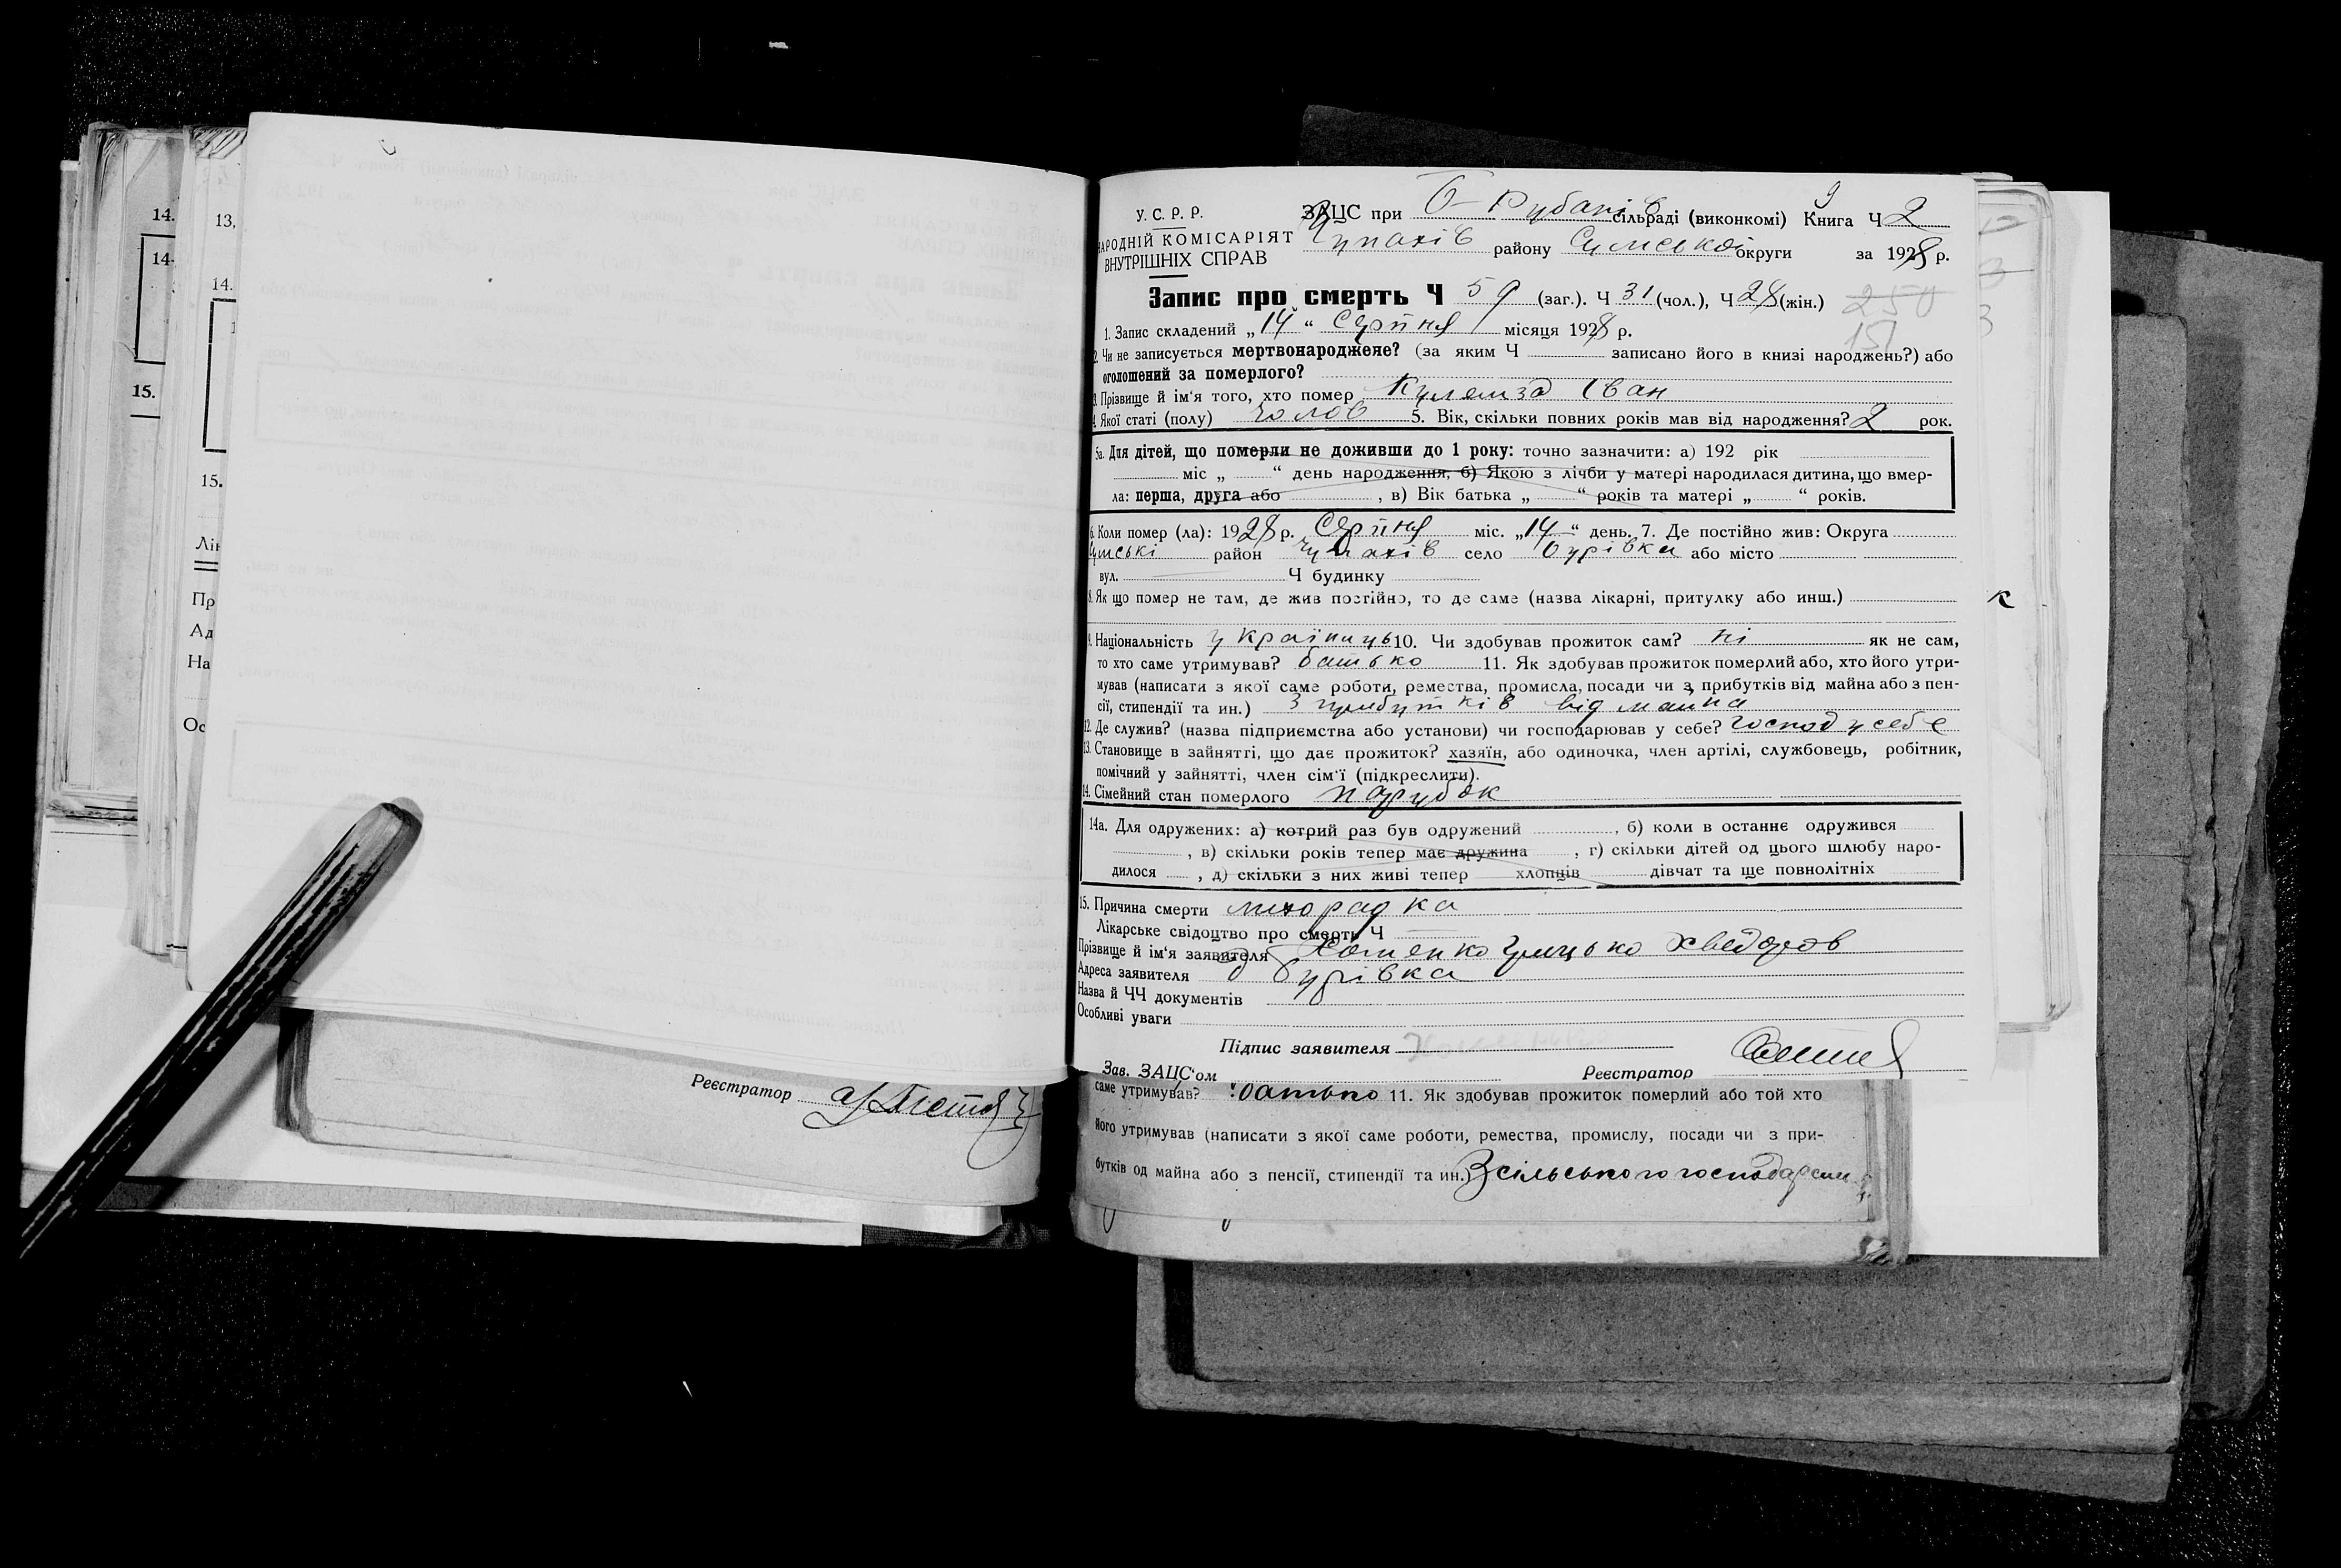 14.
14.
15.
13,
14.
15.
Лік
Пр
Ад
На
Ос
Реєстратор
У. С. Р. Р.
НАРОДНІЙ КОМІСАРІЯТ
ВНУТРІШНІХ СПРАВ
ЗАЦС при сільраді (виконкомі) Книга Ч 2
Чупахів району Сумської округи за 1928 р.
Запис про смерть Ч 59 (заг.). Ч 31 (чол.), Ч 28 (жін.)
250
151
1. Запис складений „14“ Серпня місяця 1928 р.
2. Чи не записується мертвонароджене? (за яким Ч записано його в книзі народжень?) або
оголошений за померлого?
3. Прізвище й ім'я того, хто помер Іван
4. Якої статі (полу) чолов 5. Вік, скільки повних років мав від народження? 2 рок.
5а. Для дітей, що померли не доживши до 1 року: точно зазначити: а) 192 рік
міс „ “ день народження, б) Якою з лічби у матері народилася дитина, що вмер-
ла: перша, друга або , в) Вік батька „ “ років та матері „ “ років.
6. Коли помер (ла): 1928 р. Серпня міс. „14“ день. 7. Де постійно жив: Округа
Сумські район Чупахів село Бурівка або місто
вул. Ч будинку
8. Як що помер не там, де жив постійно, то де саме (назва лікарні, притулку або инш.)
9. Національність українець 10. Чи здобував прожиток сам? ні як не сам,
то хто саме утримував? батько 11. Як здобував прожиток померлий або, хто його утри-
мував (написати з якої саме роботи, ремества, промисла, посади чи з прибутків від майна або з пен-
сії, стипендії та ин.) З прибутків від майна
12. Де служив? (назва підприємства або установи) чи господарював у себе? господ у себе
13. Становище в зайнятті, що дає прожиток? хазяїн, або одиночка, член артілі, службовець, робітник,
помічний у зайнятті, член сім'ї (підкреслити).
14. Сімейний стан померлого парубок
14а. Для одружених: а) котрий раз був одружений , б) коли в останнє одружився
, в) скільки років тепер має дружина , г) скільки дітей од цього шлюбу наро-
дилося , д) скільки з них живі тепер хлопців дівчат та ще повнолітніх
15. Причина смерти лихорадка
Лікарське свідоцтво про смерть Ч
Прізвище й ім'я заявителя Хоменко Грицько Хведоров
Адреса заявителя Бурівка
Назва й ЧЧ документів
Особливі уваги
Підпис заявителя
Зав. ЗАЦС'ом Реєстратор
К
саме утримував? батько 11. Як здобував прожиток померлий або той хто
його утримував (написати з якої саме роботи, ремества, промислу, посади чи з при-
бутків од майна або з пенсії, стипендії та ин.) З сільського